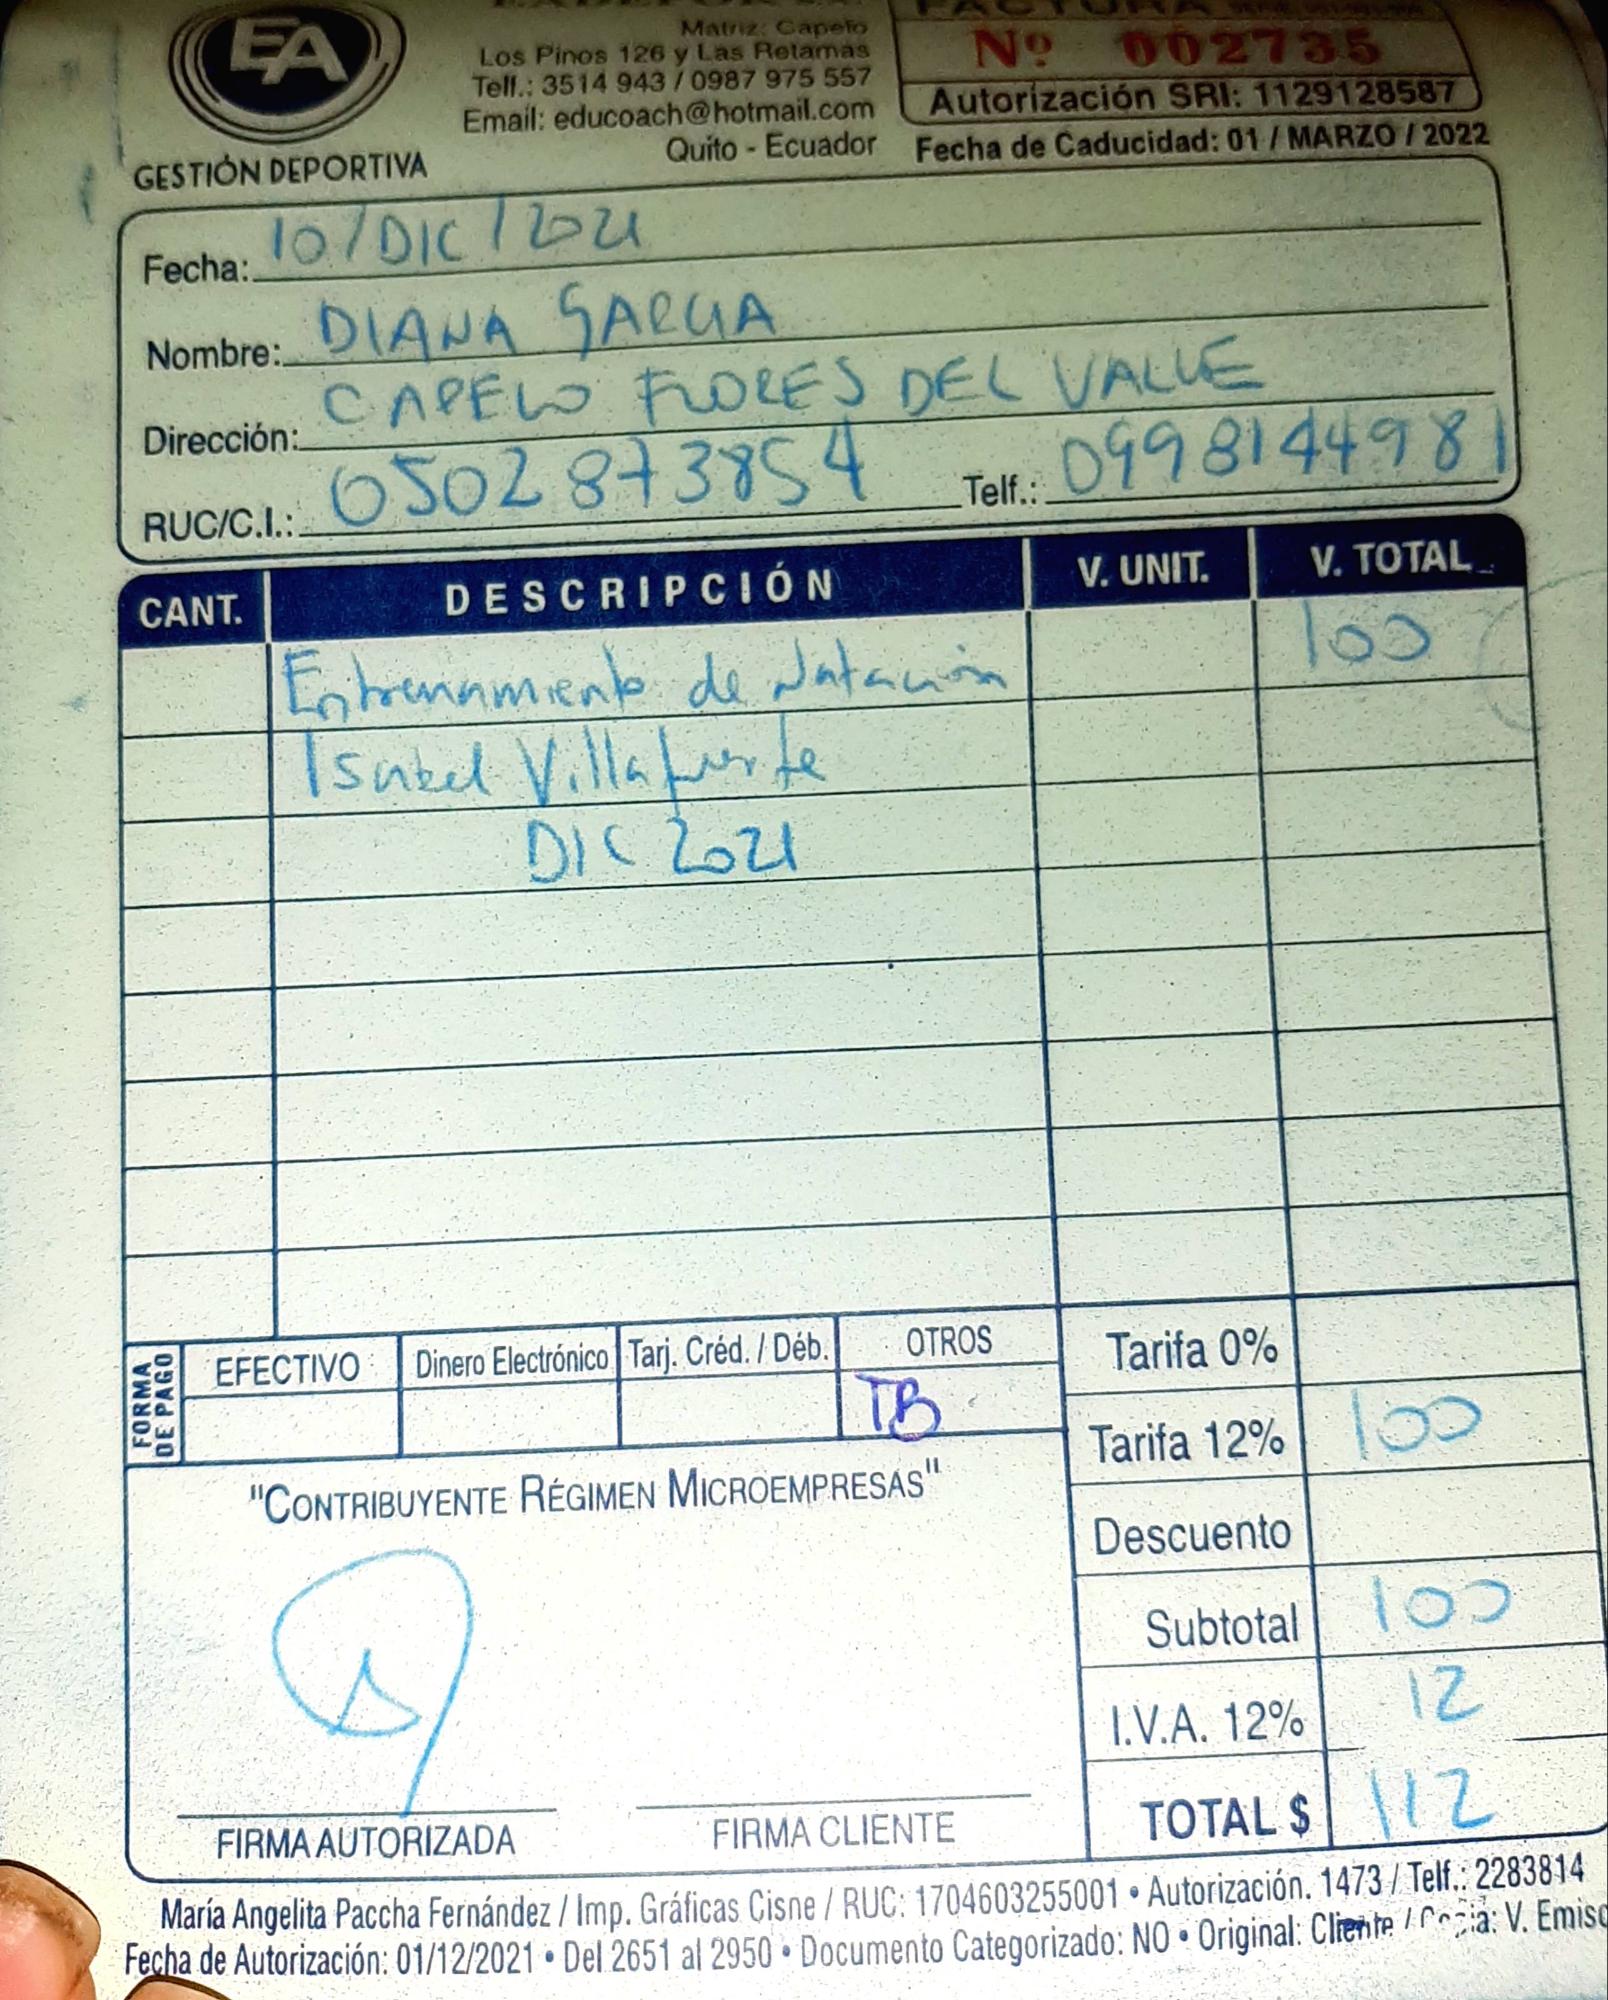 EA
GESTIÓN DEPORTIVA
Matriz: Capelo
Los Pinos 126 y Las Retamas
Telf.: 3514 943 / 0987 975 557
Email: educoach@hotmail.com
Quito - Ecuador
FACTURA
Nº 002735
Autorización SRI: 1129128587
Fecha de Caducidad: 01 / MARZO / 2022
Fecha: 10/DIC/2021
Nombre: DIANA GARCIA
Dirección: CAPELO FLORES DEL VALLE
RUC/C.I.: 0502873854 Telf.: 0998144981
CANT. DESCRIPCIÓN V. UNIT. V. TOTAL
Entrenamiento de Natación 100
Isabel Villafuerte
DIC 2021
FORMA DE PAGO
EFECTIVO Dinero Electrónico Tarj. Créd. / Déb. OTROS
TB
Tarifa 0%
Tarifa 12% 100
Descuento
Subtotal 100
I.V.A. 12% 12
TOTAL $ 112
"CONTRIBUYENTE RÉGIMEN MICROEMPRESAS"
FIRMA AUTORIZADA FIRMA CLIENTE
María Angelita Paccha Fernández / Imp. Gráficas Cisne / RUC: 1704603255001 • Autorización. 1473 / Telf.: 2283814
Fecha de Autorización: 01/12/2021 • Del 2651 al 2950 • Documento Categorizado: NO • Original: Cliente / V. Emiso